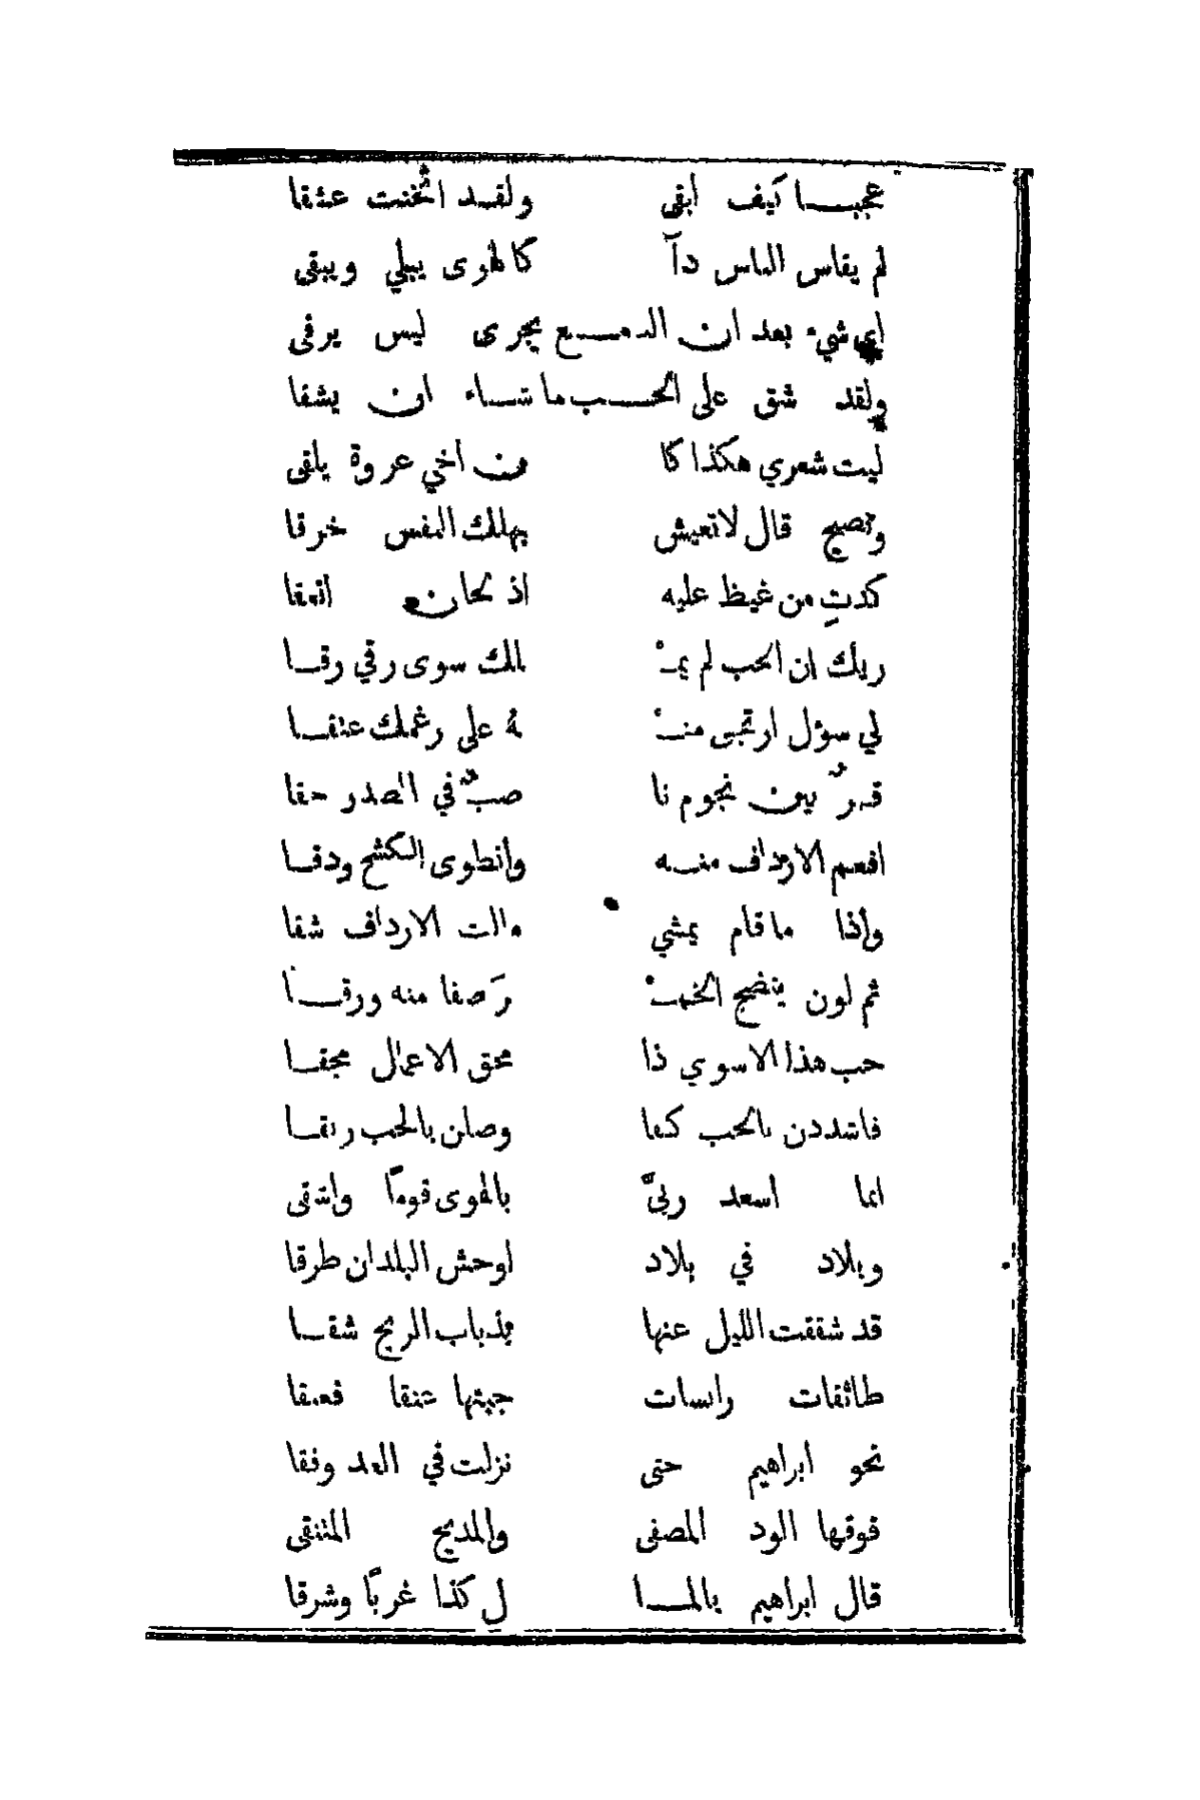 عجبا كيف ابقى ولقد اثخنت عشقا
لم يقاس الناس دآ كالهوى يبلي ويبقى
اي شيء بعد ان الدمع يجرى ليس يرقى
ولقد شق على الحب ما شاء ان يشقا
ليت شعري هكذا كا ن اخي عروة يلقى
ونصيح قال لا تعيش بهلك النفس خرقا
كدت من غيظ عليه اذ لحاني انعقا
ريك ان الحب لم يمـ لك سوى رقي رقا
لي سؤل ارتجى منـ ه على رغمك عتقا
قمرٌ بين نجوم نا صبٌ في الصدر حقا
افعم الارداف منه وانطوى الكشح ودقا
واذا ما قام يمشي مالت الارداف شقا
ثم لون ينضج الخمـ رَ صفا منه ورقا
حب هذا الاسوي ذا محق الاعمال محقا
فاشددن بالحب كفا وصلن بالحب ربقا
انما اسعد ربيّ بالهوى قومًا واشقى
وبلاد في بلاد اوحش البلدان طرقا
قد شققت الليل عنها بذباب الريح شقا
طائفات راسات جبتها عنقا فعنقا
نحو ابراهيم حتى نزلت في العد وفقا
فوقها الود المصفى والمديح المتنقى
قال ابراهيم بالما ل كذا غربًا وشرقا